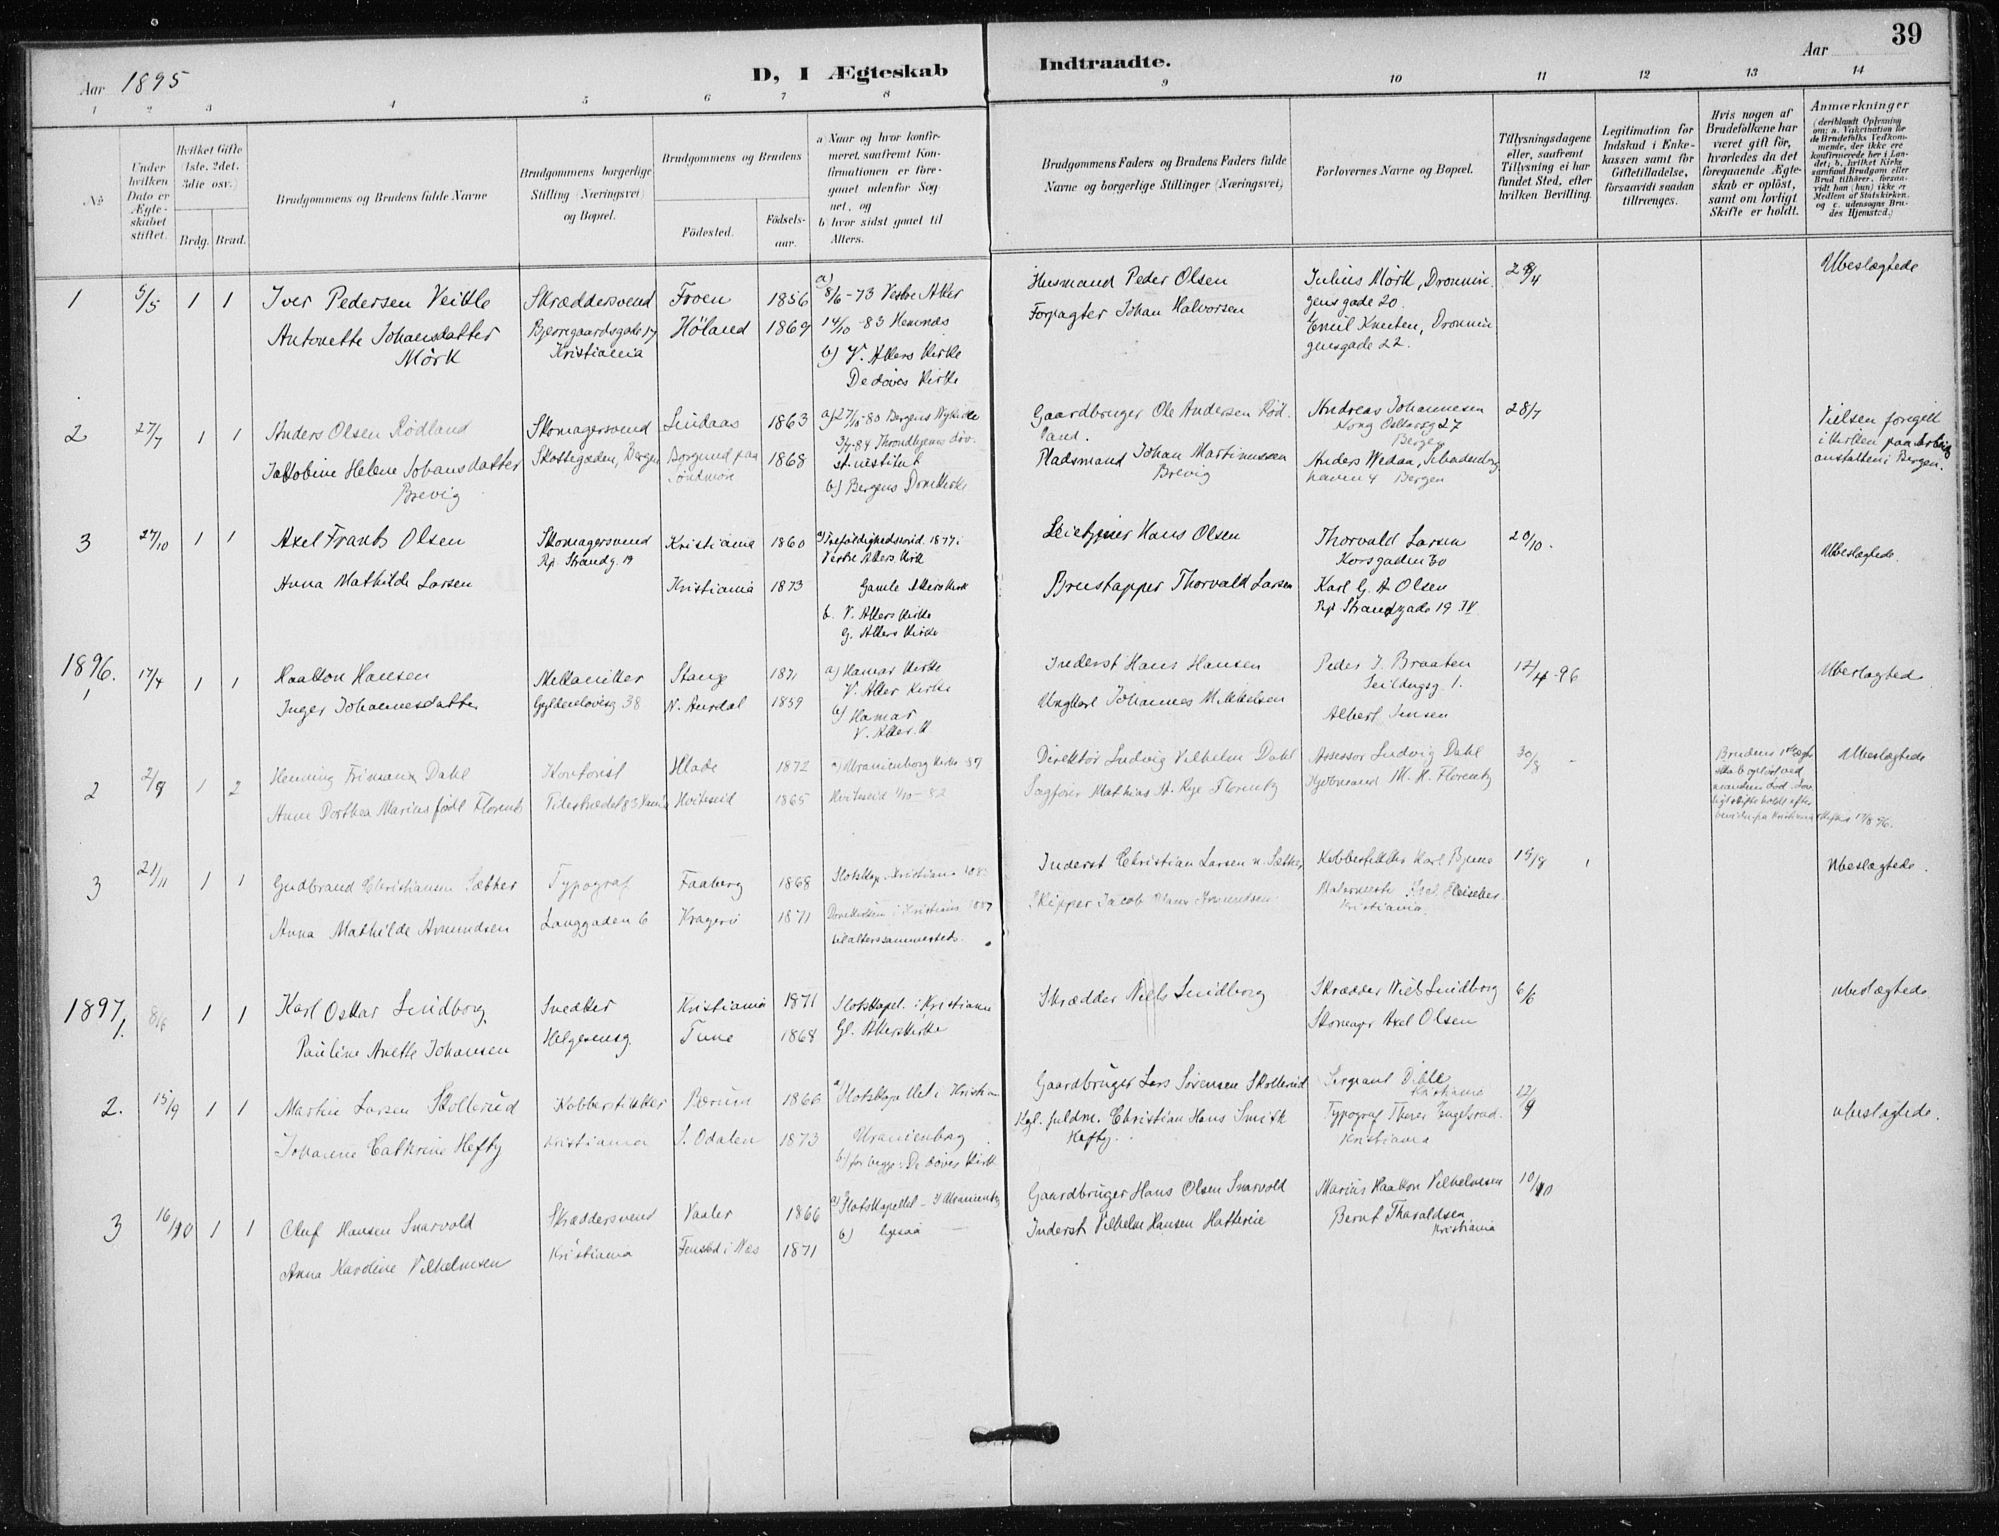 39
Aar 1895
D, I Ægteskab
Indtraadte.
Aar
1 2 3 4 5 6 7 8 9 10 11 12 13 14
No
Under hvilken Dato er Ægteskabet stiftet.
Hvilket Gifte (1ste. 2det. 3die osv.)
Brdg. Brud.
Brudgommens og Brudens fulde Navne
Brudgommens borgerlige Stilling (Næringsvei) og Bopæl.
Brudgommens og Brudens
Fødested.
Fødselsaar.
a) Naar og hvor konfirmeret, saafremt Konfirmationen er foregaaet udenfor Sognet, og
b) hvor sidst gaaet til Alters.
Brudgommens Faders og Brudens Faders fulde Navne og borgerlige Stillinger (Næringsvei)
Forlovernes Navne og Bopæl.
Tillysningsdagene eller, saafremt Tillysning ei har fundet Sted, efter hvilken Bevilling.
Legitimation for Indskud i Enkekassen samt for Giftetilladelse, forsaavidt saadan tiltrænges.
Hvis nogen af Brudefolkene har været gift før, hvorledes da det foregaaende Ægteskab er opløst, samt om lovligt Skifte er holdt.
Anmærkninger
(deriblandt Oplysning om: a. Vakcination for de Brudefolks Vedkommende, der ikke ere konfirmerede her i Landet; b. hvilket Kirkesamfund Brudgom eller Brud tilhører, forsaavidt han (hun) ikke er Medlem af Statskirken, og c. udensogns Brudes Hjemsted.)
1 5/5 1 1 Iver Pedersen Skræddersvend Froen 1856 a) 8/6-73 Vestre Aker Husmand Peder Olsen Julius Mörk, Dronningensgade 20. 28/4 Ubeslægtede
Antonette Johansdatter Mörk Bjerregaardsgade 17 Kristiania Höland 1869 14/10-83 Hemnæs Forpagter Johan Halvorsen Emil Knuten, Dronningensgade 22.
b) V. Akers Kirke
De döves Kirke
2 27/7 1 1 Anders Olsen Rødland Skomagersvend Lindaas 1863 a) 27/10-80 Bergens Nykirke Gaardbruger Ole Andersen Rødland. Andreas Johannesen Kong Oskarsg 27 Bergen 28/7 Vielsen foregik i Kirken paa Arbeidsanstalten i Bergen.
Jakobine Helene Johansdatter Brevig Skottegaden, Bergen Borgund paa Söndmör 1868 Throndhjems døvst. institut Pladsmand Johan Martinussen Brevig Anders Wedaa, Bergen
b) Bergens Domkirke
3 27/10 1 1 Axel Frants Olsen Skomagersvend Kristiania 1860 a) Trefoldighedssönd 1877 i Vestre Akers Kirk Hans Olsen Thorvald Larsen Korsgaden 30 20/10. Ubeslægtede.
Strandg. 19
Anna Mathilde Larsen Kristiania 1873 Gamle Akers Kirk Thorvald Larsen Karl G. A Olsen Strandgade 19 IV
b. V. Akers Kirke
G. Akers Kirke
1896.
1 17/4 1 1 Haakon Hansen Mekaniker Stange 1871 a) Hamar Kirke Inderst Hans Hansen Peder J. Braaten 12/4-96 Ubeslægtede
Inger Johannesdatter Gyldenlövesg 38 N. Aurdal 1859 V. Aker Kirke Ungkarl Johannes Mikkelsen Albert Jensen
b) Hamar
V. Aker K
2 2/9 1 2 Henning Dahl Kontorist Hlade 1872 a) Uranienborg Kirke 87 Direktör Ludvig Vilhelm Dahl Assessor Ludvig Dahl 30/8 - Ubeslægtede
Anne Dorthea Marian född Florentz Pilestrædet 83 Kania Hviteseid 1865 Hviteseid 1/10-82 Sagförer Mathias A. Rye Florentz M. H. Florentz
3 21/11 1 1 Gudbrand Christiansen Sæther Typograf Faaberg 1868 Slotskap. Kristiania Inderst Christian Larsen Sæther Kobberstikker Karl Bjerne 15/8 Ubeslægtede.
Anna Mathilde Amundsen Langgaden 6 Kragerö 1871 Domkirken i Kristiania 1887 Skipper Jacob Amundsen Kristiania.
til alters sammesteds.
1897
1. 8/6 1 1 Karl Oskar Lindborg Snedker Kristiania 1871 Slotskapel. i Kristiania Skrædder Niels Lindborg Skrædder Niels Lindborg 6/6 ubeslægtede.
Pauline Anette Johansen Helgesensg. Tune 1868 Gl. Akers Kirke Skomager Axel Olsen
2. 15/9 1 1 Martin Larsen Skollerud Kobberstikker Bærum 1866 a) Slotskapellet i Kristia- Gaardbruger Lars Sørensen Skollerud Sergeant Kristiania 12/9 ubeslægtede.
Johanne Cathrine Hefty Kristiania S. Odalen 1873 Uranienborg Kgl. fuldm. Christian Hans Smith Hefty. Typograf Kristiania
b) for begge: De døves Kirk
3 16/10 1 1 Oluf Hansen Snarvold Skræddersvend Vaaler 1866 a) Slotskapellet - Uranienbg Gaardbruger Hans Olsen Snarvold Marius Haakon Vilhelmsen 10/10
Anna Karoline Vilhelmsen Kristiania Fensted i Næs 1871 b) ligesaa Inderst Vilhelm Hansen Bernt Tharaldsen Kristiania